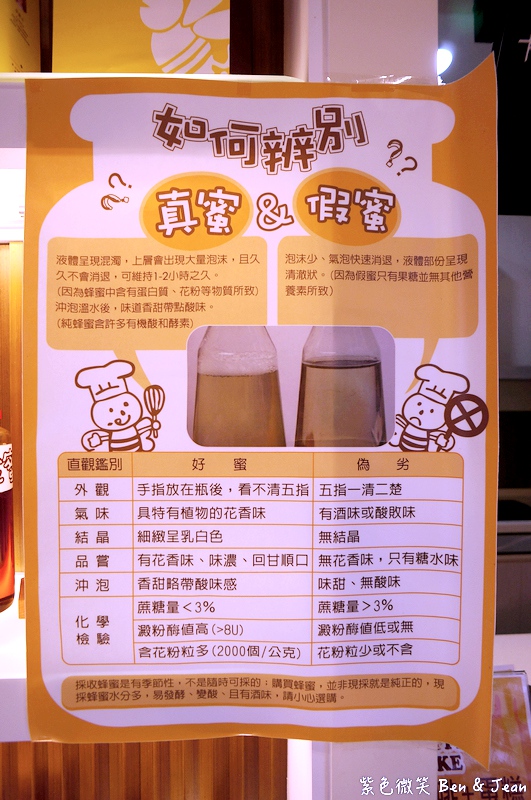 如何辨別
??
??
真蜜 & 假蜜
液體呈現混濁，上層會出現大量泡沫，且久
久不會消退，可維持1-2小時之久。
(因為蜂蜜中含有蛋白質、花粉等物質所致)
沖泡溫水後，味道香甜帶點酸味。
(純蜂蜜含許多有機酸和酵素)
泡沫少、氣泡快速消退，液體部份呈現
清澈狀。(因為假蜜只有果糖並無其他營
養素所致)
直觀鑑別 好蜜 偽劣
外觀 手指放在瓶後，看不清五指 五指一清二楚
氣味 具特有植物的花香味 有酒味或酸敗味
結晶 細緻呈乳白色 無結晶
品嘗 有花香味、味濃、回甘順口 無花香味，只有糖水味
沖泡 香甜略帶酸味感 味甜、無酸味
化學
檢驗
蔗糖量＜3% 蔗糖量＞3%
澱粉酶值高(>8U) 澱粉酶值低或無
含花粉粒多(2000個/公克) 花粉粒少或不含
採收蜂蜜是有季節性，不是隨時可採的；購買蜂蜜，並非現採就是純正的，現
採蜂蜜水分多，易發酵、變酸、且有酒味，請小心選購。
KE
蛋糕
紫色微笑 Ben & Jean